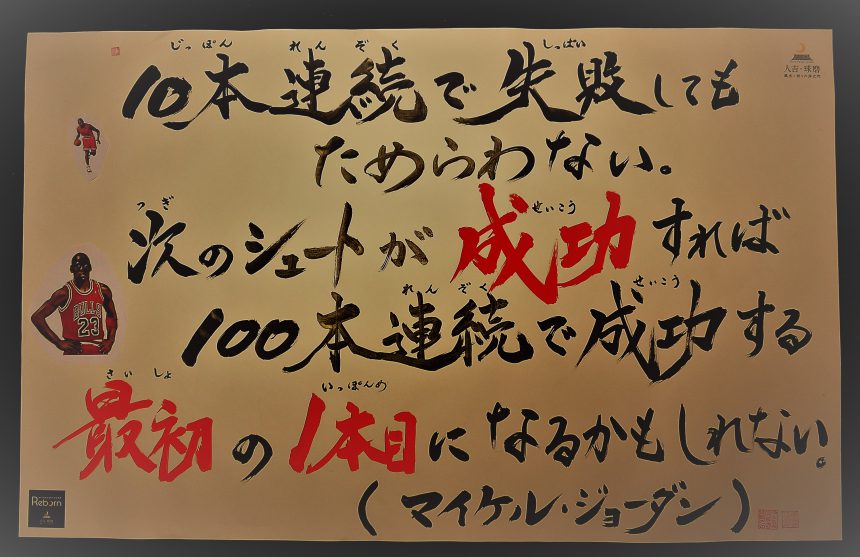 じっぽん れんぞく しっぱい
10本連続で失敗しても
ためらわない。
つぎ せいこう
次のシュートが成功すれば
れんぞく せいこう
100本連続で成功する
さいしょ いっぽんめ
最初の1本目になるかもしれない。
(マイケル・ジョーダン)
人吉・球磨
BULLS
23
Reborn